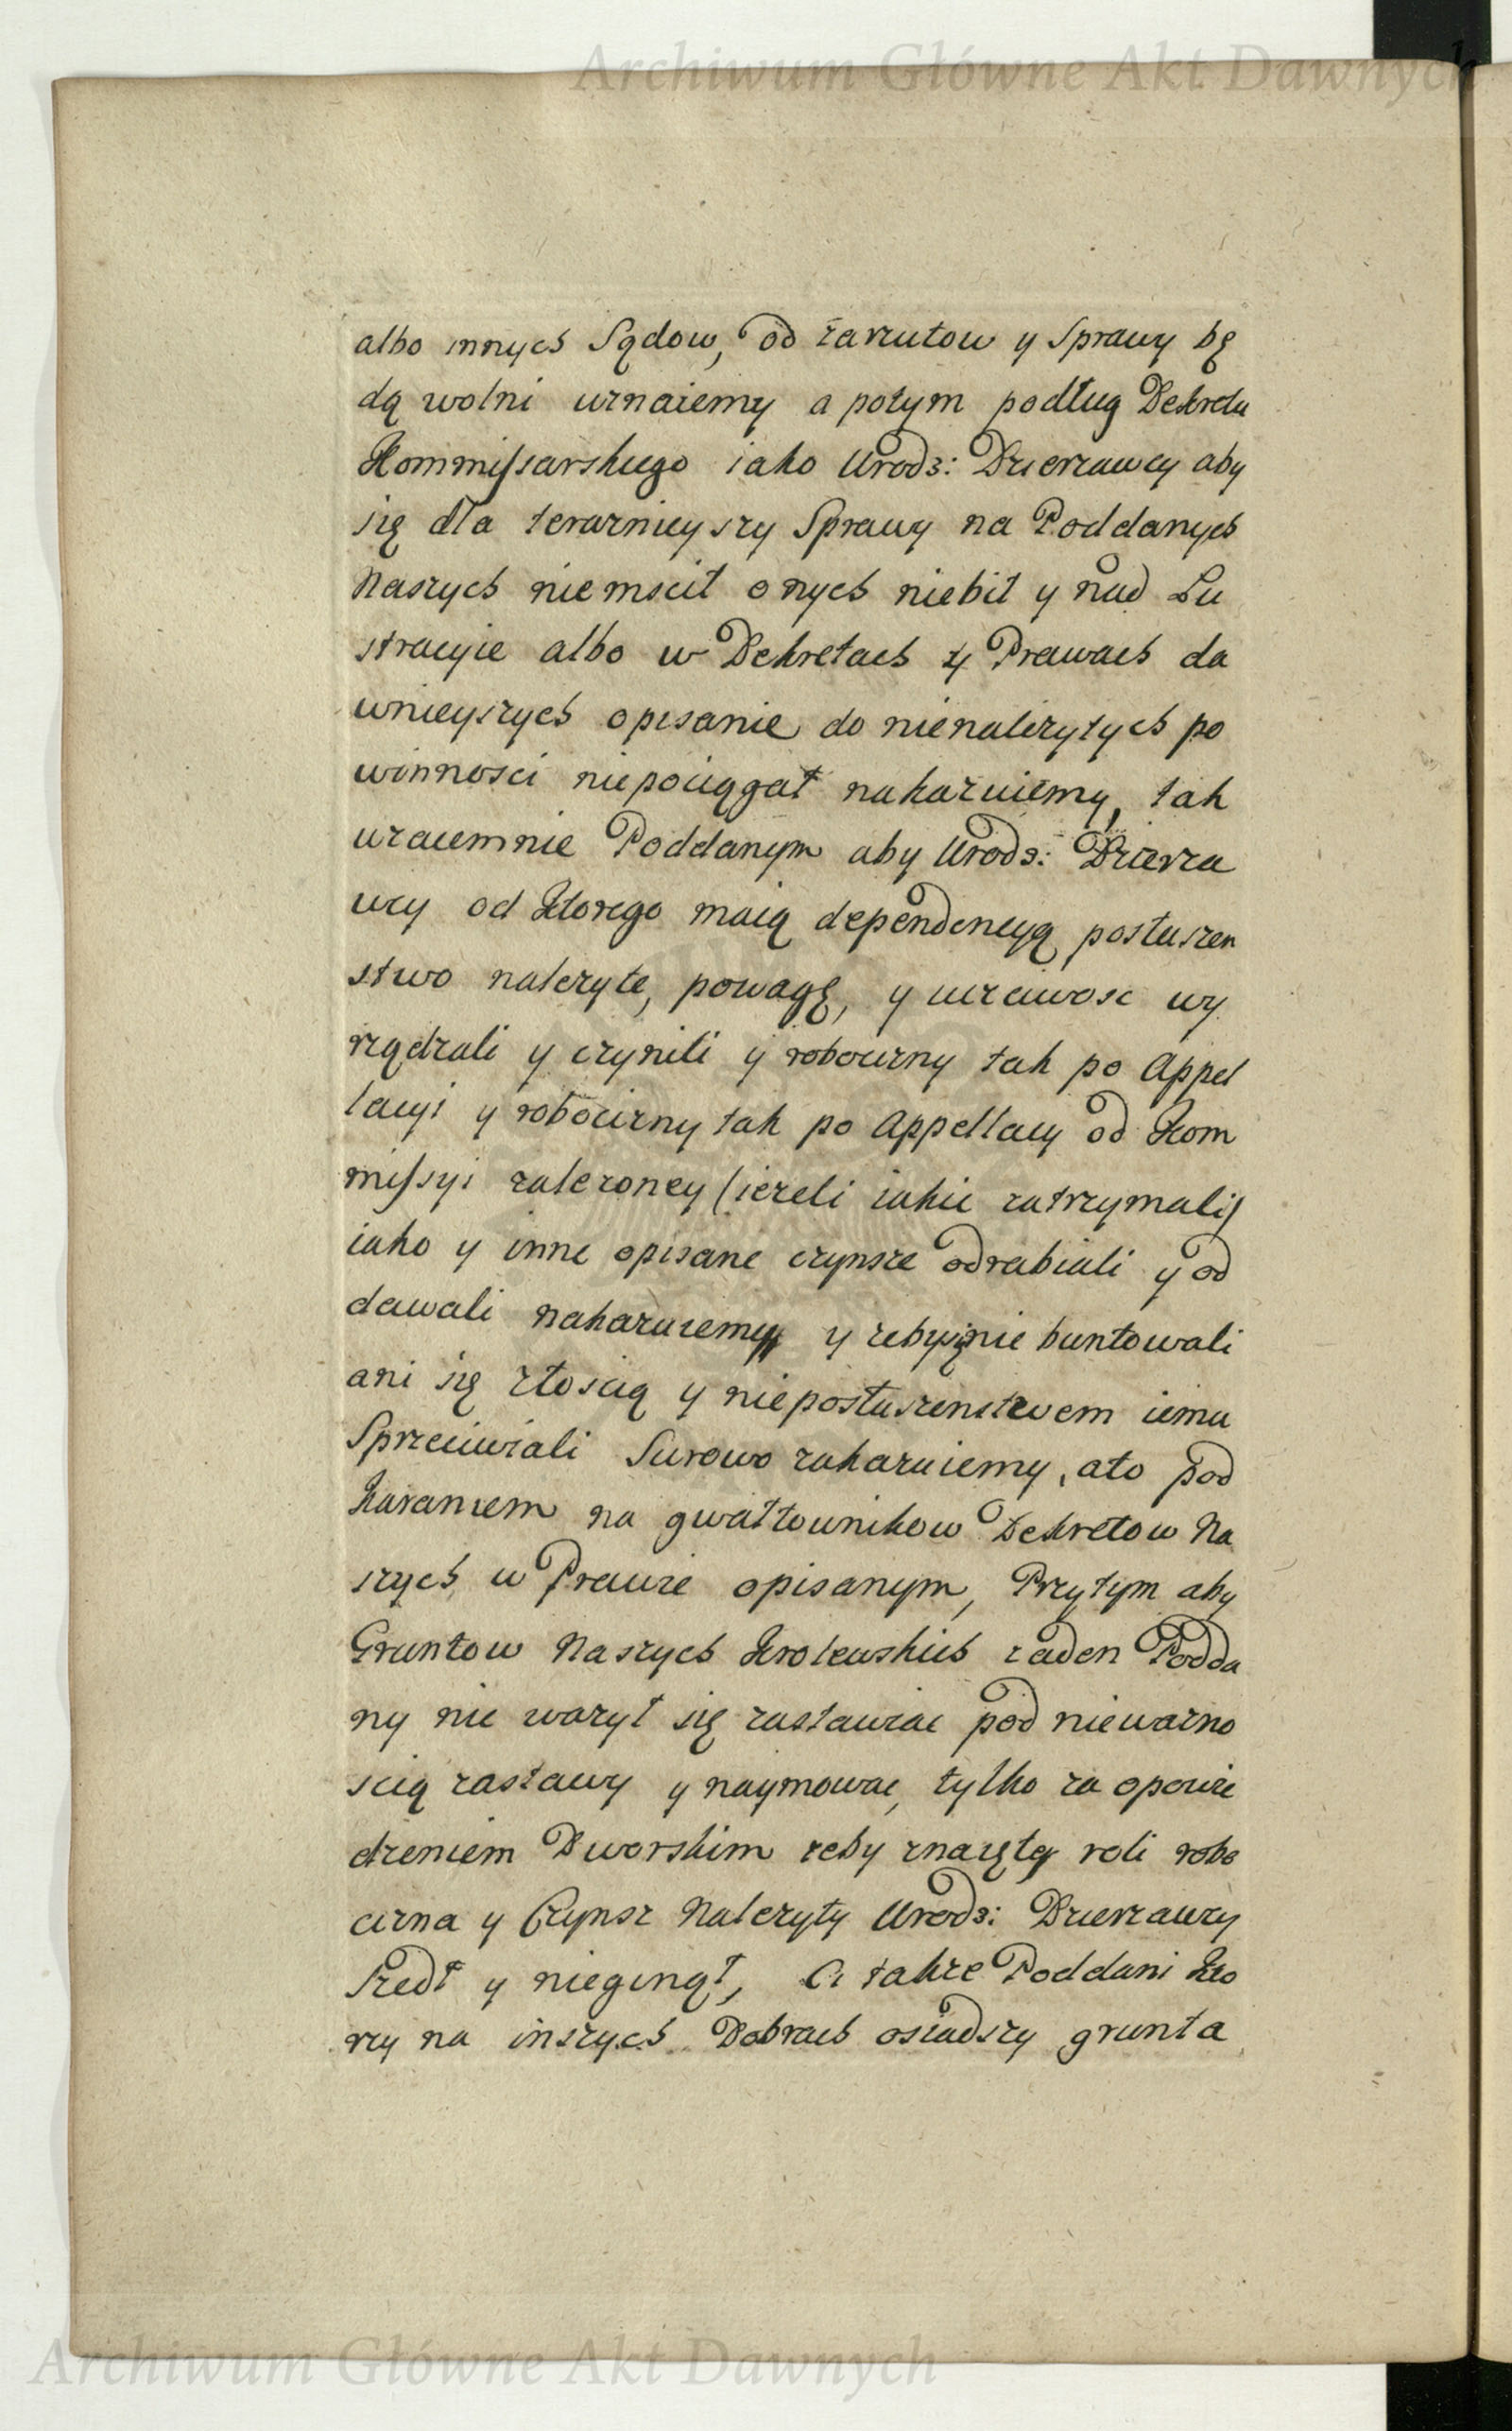 Archiwum Główne Akt Dawnych
albo innych Sądow, od zarzutow y Sprawy bę
dą wolni uznaiemy a potym podług Dekretu
Kommissarskiego iako Urodz: Dzierzawcy aby
się dla teraznieyszy Sprawy na Poddanych
Naszych niemscił onych niebił y nad Lu
stracyie albo w Dekretach y Prawach da
wnieyszych opisanie do nienalezytych po
winnosci niepociągał nakazuiemy, tak
wzaiemnie Poddanym aby Urodz: Dzierza
wcy od Ktorego maią dependencyą posłuszen
stwo nalezyte, powagę, y uczciwosc wy
rządzali y czynili y robocizny tak po Appel
lacyi y robocizny tak po Appellacy od Kom
missyi zalezoney (iezeli iakie zatrzymali)
iako y inne opisane czynsze odrabiali y od
dawali nakazuiemy y zeby się nie buntowali
ani się złoscią y nieposłuszenstwem iemu
Sprzeciwiali Surowo zakazuiemy, ato pod
Karaniem na gwałtownikow Dekretow Na
szych w Prawie opisanym, Przytym aby
Gruntow Naszych Krolewskich zaden Podda
ny nie wazył się zastawiac pod niewazno
scią zastawy y naymowac, tylko za opowie
dzeniem Dworskim zeby znaięty roli robo
cizna y Czynsz Nalezyty Urodz: Dzierzawcy
szedł y nieginął, Ci takze Poddani Kto
rzy na inszych Dobrach osiadszy grunta
Archiwum Główne Akt Dawnych